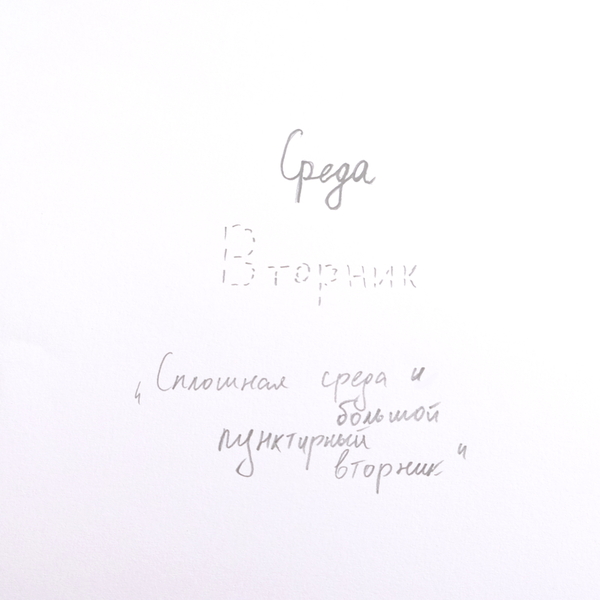 Среда
Вторник
„Сплошная среда и
большой
пунктирный
вторник"